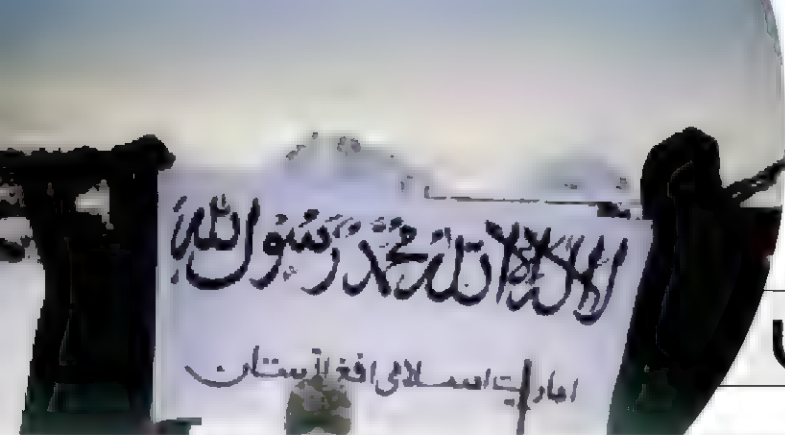 لا إله إلا الله محمد رسول الله
امارت اسلامی افغانستان